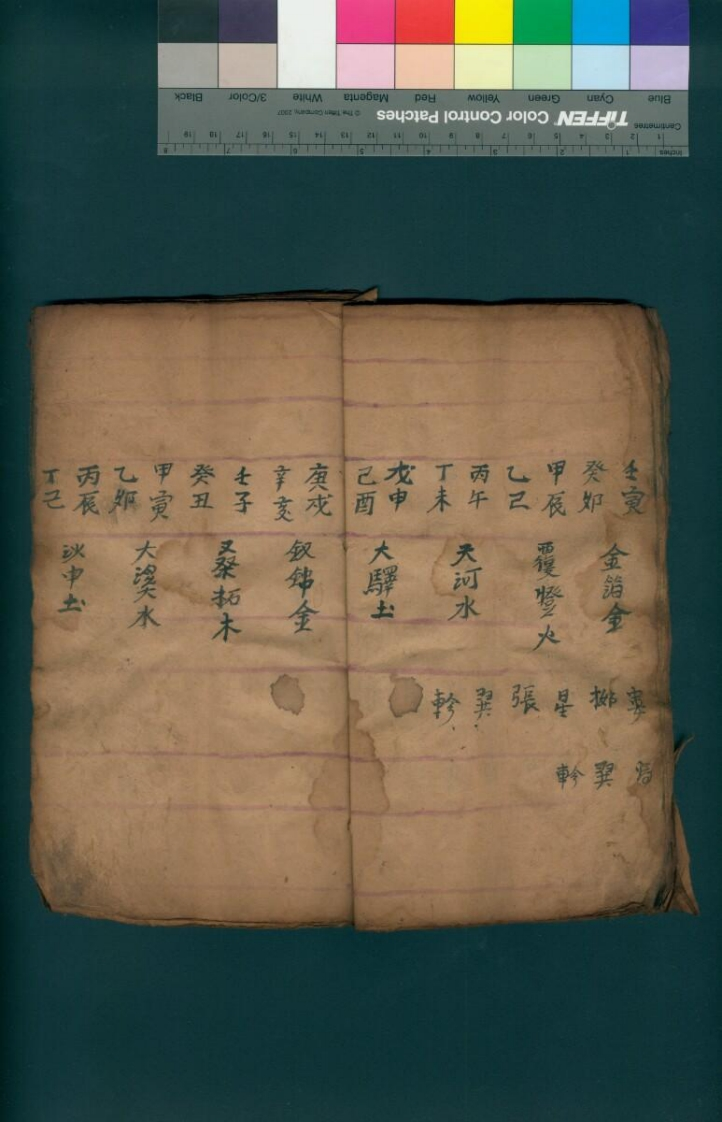 壬寅
癸卯
金箔金
甲辰
乙巳
覆燈火
丙午
丁未
天河水
戊申
己酉
大驛土
庚戌
辛亥
釵釧金
壬子
癸丑
桑柘木
甲寅
乙卯
大溪水
丙辰
丁巳
沙中土
星
張
翼
軫
翼
軫
Blue
Cyan
Green
Yellow
Red
Magenta
White
3/Color
Black
Centimetres
TIFFEN Color Control Patches
© The Tiffen Company, 2007
1 2 3 4 5 6 7 8 9 10 11 12 13 14 15 16 17 18 19
Inches
1 2 3 4 5 6 7 8